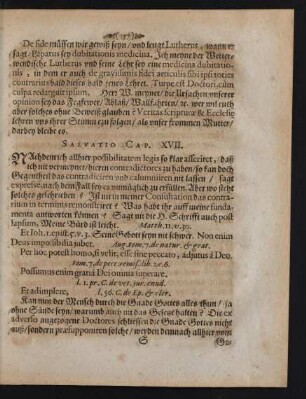 De fide müssen wir gewiß seyn/ und leugt Lutherus, wann er
sagt, Ephatus sey dubitationis medicina. Ich meyne der Wetter-
wendische Lutherus und seine Lehr sey eine medicina dubitatio-
nis, in dem er auch de gravissimis fidei articulis sibi ipsi toties
contrarius: bald dieses bald jenes lehret. Turpe est Doctori, cum
culpa redarguit ipsum. Herr W. meynet/ die Ursachen unserer
opinion sey das Fegfewer/ Ablaß/ Wallfahrten/ tc. wer wil euch
aber solches ohne Beweiß glauben? Veritas Scripturæ & Ecclesiæ
lehren uns ihrer Stimm zu folgen/ als unser frommen Mutter/
darbey bleibt es.
SALVATIO CAP. XVII.
NAchdem ich allhier possibilitatem legis so klar asserirt, daß
ich nit vermeynet/ hieren contradictores zu haben/ so fan doch
Gegentheil das contradiciren und calumniiren nit lassen/ sagt
expresse, nach dem Fall sey es unmüglich zu erfüllen. Aber wo steht
solches geschrieben? Ist nit in meiner Consultation das contra-
rium ex patribus remonstrirt? Was habt ihr auff meine funda-
menta antworten können? Sagt nit die H. Schrifft auch post
lapsum, Mein Bürd ist leicht. Matth. 11. v. 30.
Et Joh. 1. epist. 5. v. 3. Seine Gebott seyn nit schwer. Non enim
Deus impossibilia jubet. Aug. tom. 7. de natur. & grat.
Per hoc potest homo, si velit, esse sine peccato, adjutus à Deo.
tom. 7. de pecc. remiss. lib. 2. c. 6.
Possumus enim gratiâ Dei omnia superare.
I. 1. pr. C. de vet. jur. enucl.
Et adimplere, I. 56. C. de Ep. & cler.
Kan nun der Mensch durch die Gnade Gottes alles thun/ ja
ohne Sünde seyn/ warumb auch nit das Gesetz halten? Die ex
adverso angezogene Doctores schliessen die Gnade Gottes nicht
auß/ sondern præsupponiren solche/ werden demnach allhier vom
S Ge-